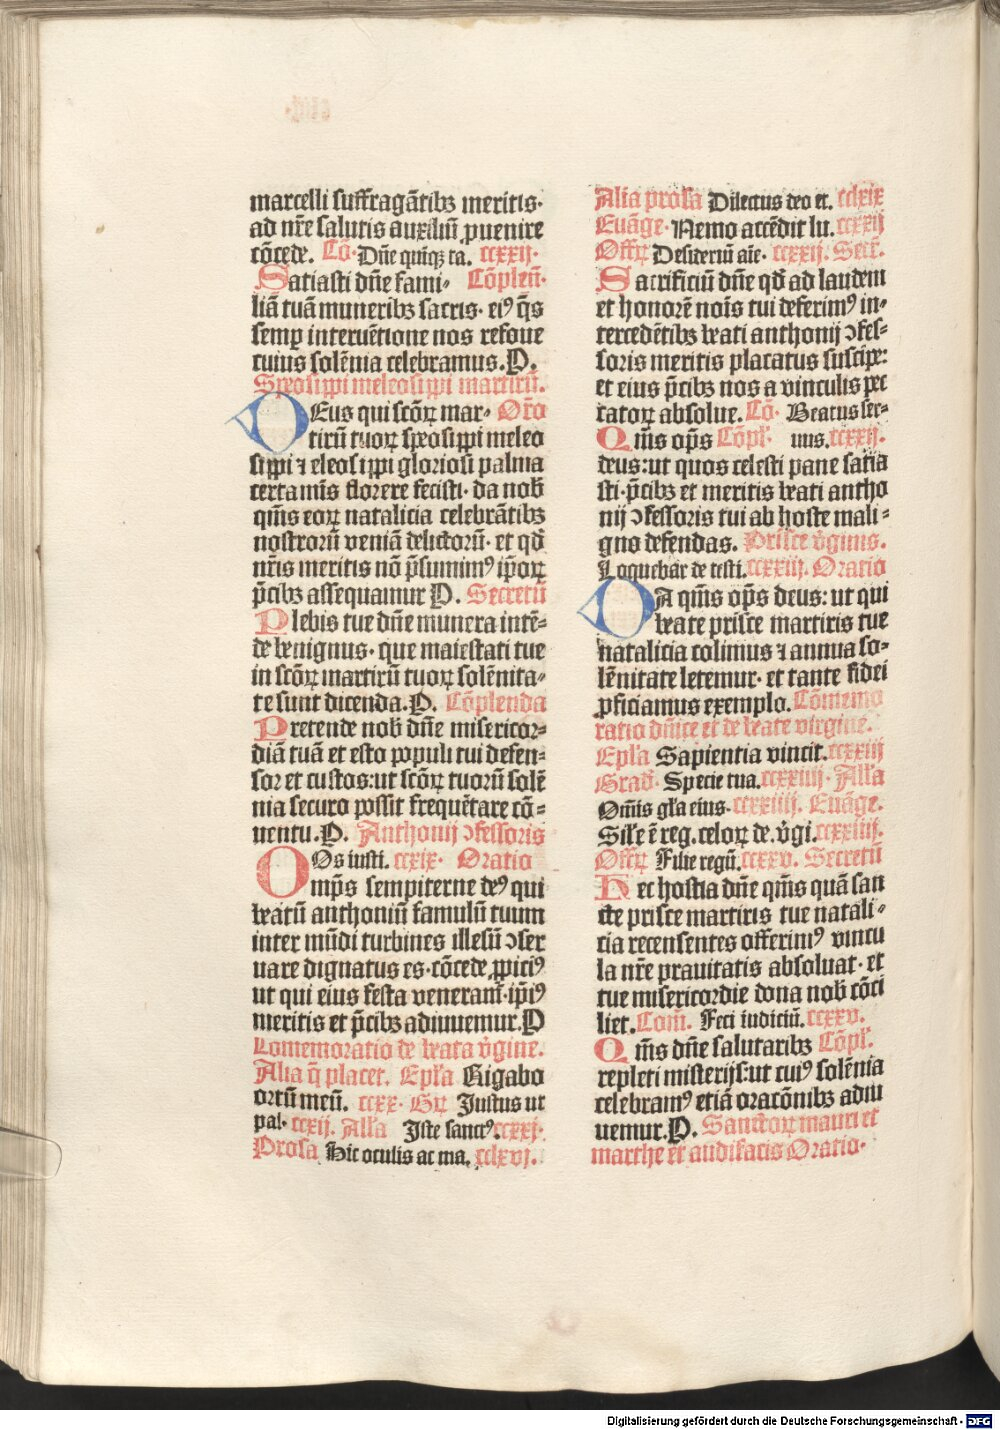 marcelli suffragãtibꝫ meritis·
ad nr̃e salutis auxiliũ ꝓuenire
cõcede. Cõ· Dñe quiqꝫ ta. ccxxij·
Satiasti dñe fami- Cõpleñ·
liã tuã muneribꝫ sacris· eiꝰ q̃s
semꝑ interuẽtione nos refoue
cuius solẽnia celebramus. P.
Speosippi meleosippi martirũ.
DEus qui scõꝝ mar- Or̃o
tirũ tuoꝝ speosippi meleo
sippi ⁊ eleosippi gloriosi palma
certamĩs florere fecisti· da nob̃
qm̃s eoꝝ natalicia celebrãtibꝫ
nostrorũ veniã delictorũ· et qd̃
nr̃is meritis nõ p̃sumimꝰ ip̃oꝝ
p̃cibꝫ assequamur P. Secretũ
Plebis tue dñe munera intẽ-
de benignus· que maiestati tue
in scõꝝ martirũ tuoꝝ solẽnita-
te sunt dicenda. P. Cõplenda
Pretende nob̃ dñe misericor-
diã tuã et esto populi tui defen-
sor et custos: ut scõꝝ tuorũ solẽ
nia securo possit frequẽtare cõ-
uentu. P. Anthonij ↄfessoris
Os iusti. ccxix· Oratio
Omp̃s sempiterne deꝰ qui
beatũ anthoniũ famulũ tuum
inter mũdi turbines illesũ ↄser
uare dignatus es· cõcede ꝓpiciꝰ
ut qui eius festa venerant̃· ip̃iꝰ
meritis et p̃cibꝫ adiuuemur. P
Comemoratio de beata v̓gine.
Alia q̃ placet. Epl̃a Gigabo
ortũ meũ. ccxx· Gꝝ Justus ut
pal· ccxij. All̃a Iste sanctꝰ. ccxxj·
Prosa Hic oculis ac ma. cclxvj.
Alia prosa Dilectus deo et. cclxix
Euãge· Nemo accẽdit lu. ccxxij
Offꝝ Desideriũ aĩe· ccxxij. Secr̃.
Sacrificiũ dñe qd̃ ad laudem
et honorẽ noĩs tui deferimꝰ in-
tercedẽtibꝫ beati anthonij ↄfes-
soris meritis placatus suscipe:
et eius p̃cibꝫ nos a vinculis pec
catoꝝ absolue. Cõ· Beatus ser-
Qm̃s op̃s Cõpl̃· uus. ccxxij·
deus: ut quos celesti pane satia
sti· p̃cibꝫ et meritis beati antho
nij ↄfessoris tui ab hoste mali-
gno defendas. Prisce v̓ginis.
Loquebar de testi. ccxxiij. Oratio
DA qm̃s op̃s deus: ut qui
beate prisce martiris tue
natalicia colimus ⁊ annua so-
lẽnitate letemur· et tante fidei
ꝓficiamus exemplo. Cõmemo
ratio dñice et de beate virgine.
Epl̃a Sapientia vincit. ccxxiij
Grad̃· Specie tua. ccxxiiij· All̃a
Om̃is gl̃a eius· ccxxiiij. Euãge.
Sil̃e ẽ reg. celoꝝ de. v̓gi. ccxxiiij.
Offꝝ Filie regũ. ccxxv. Secretũ
Hec hostia dñe qm̃s quã san
cte prisce martiris tue natali-
cia recensentes offerimꝰ vincu
la nr̃e prauitatis absoluat· et
tue misericordie dona nob̃ cõci
liet. Com̃. Feci iudiciũ. ccxxv.
Qm̃s dñe salutaribꝫ Cõpl̃·
repleti misterijs: ut cuiꝰ solẽnia
celebramꝰ etiã oracõnibꝫ adiu
uemur. P. Sanctoꝝ mauri et
marthe et audifacis Oratio·
Digitalisierung gefördert durch die Deutsche Forschungsgemeinschaft - DFG